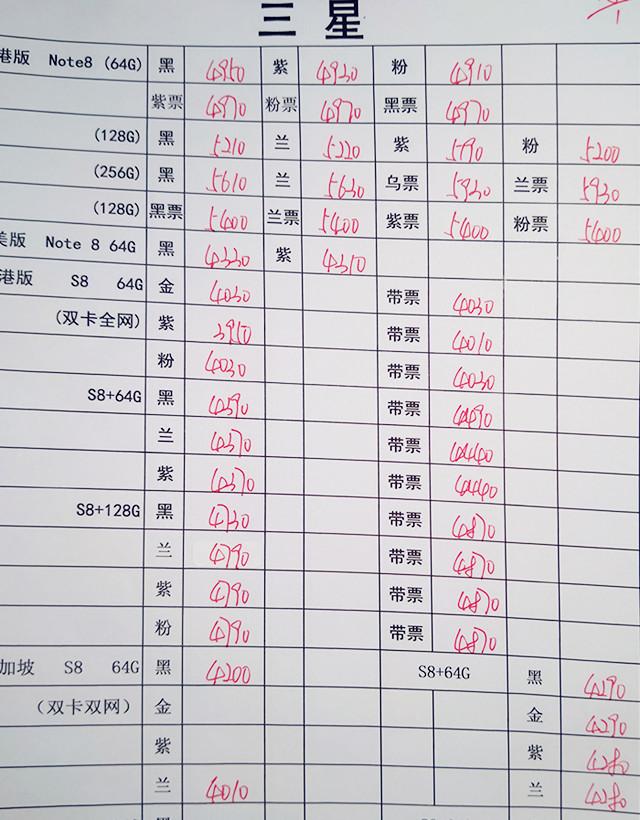 三星
港版 Note8 (64G) 黑 4950 紫 4930 粉 4910
紫票 4970 粉票 4970 黑票 4970
(128G) 黑 5210 兰 5220 紫 5190 粉 5200
(256G) 黑 5610 兰 5630 乌票 5930 兰票 5930
(128G) 黑票 5400 兰票 5400 紫票 5400 粉票 5400
美版 Note 8 64G 黑 4330 紫 4310
港版 S8 64G 金 4030 带票 4030
(双卡全网) 紫 3950 带票 4010
粉 4030 带票 4030
S8+64G 黑 带票 4490
兰 4370 带票 4440
紫 4370 带票 4440
S8+128G 黑 4730 带票 4870
兰 4790 带票 4870
紫 4790 带票 4870
粉 4790 带票 4870
加坡 S8 64G 黑 4200 S8+64G 黑 4290
(双卡双网) 金 金 4290
紫 紫 4280
兰 4010 兰 4280